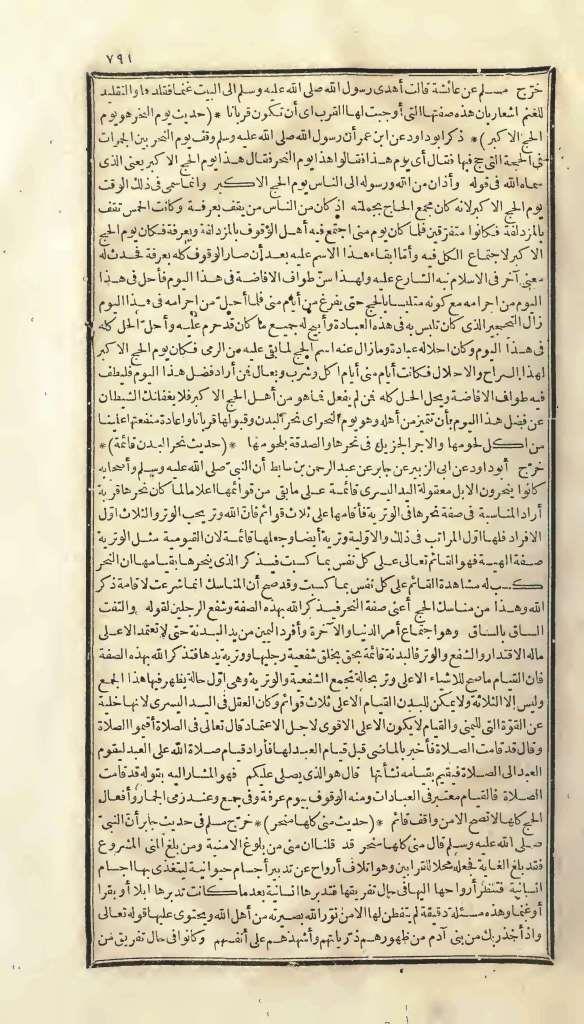 ٧٩١
خرّج مسلم عن عائشة قالت أهدى رسول الله صلى الله عليه وسلم الى البيت غنما فقلدها والتقليد
للغنم اشعار بان هذه صفتها التى أوجبت لها القرب أى أن تكون قربانا *(حديث يوم النحر هو يوم
الحج الاكبر)* ذكر أبو داود عن ابن عمر أن رسول الله صلى الله عليه وسلم وقف يوم النحر بين الجمرات
فى الحجة التى حج فيها فقال أى يوم هذا فقالوا هذا يوم النحر فقال هذا يوم الحج الاكبر يعنى الذى
سماه الله فى قوله وأذان من الله ورسوله الى الناس يوم الحج الاكبر وانما سمى فى ذلك الوقت
يوم الحج الاكبر لانه كان مجمع الحاج بجملته اذ كان من الناس من يقف بعرفة وكانت الحمس تقف
بالمزدلفة فكانوا متفرقين فلما كان يوم منى اجتمع فيه أهل الوقوف بالمزدلفة وبعرفة فكان يوم الحج
الاكبر لاجتماع الكل فيه وأما ابقاء هذا الاسم عليه بعد أن صار الوقوف كله بعرفة فحدث له
معنى آخر فى الاسلام نبه الشارع عليه ولهذا سنّ طواف الافاضة فى هذا اليوم فأحل فى هذا
اليوم من احرامه مع كونه متلبسا بالحج حتى يفرغ من أيام منى فلما أحلّ من احرامه فى هذا اليوم
زال التحجير الذى كان تلبس به فى هذه العبادة وأبيح له جميع ما كان قد حرم عليه وأحلّ الحل كله
فى هذا اليوم وكان احلاله عبادة وما زال عنه اسم الحج لما بقى عليه من الرمى فكان يوم الحج الاكبر
لهذا السراح والاحلال فكانت أيام منى أيام أكل وشرب وبعال فمن أراد فضل هذا اليوم فليطف
فيه طواف الافاضة ويحل الحل كله فمن لم يفعل فما هو من أهل الحج الاكبر فلا يغفلنك الشيطان
عن فضل هذا اليوم بأن تتميز من أهله وهو يوم النحر أى نحر البدن وقبولها قربانا واعادة منفعتها علينا
من اكل لحومها والاجر الجزيل فى نحرها والصدقة بلحومها *(حديث نحر البدن قائمة)*
خرّج أبو داود عن أبى الزبير عن جابر عن عبد الرحمن بن سابط أن النبىّ صلى الله عليه وسلم وأصحابه
كانوا ينحرون الابل معقولة اليد اليسرى قائمة على ما بقى من قوائمها اعلاما لما كان نحرها قربة
أراد المناسبة فى صفة نحرها فى الوترية فأقامها على ثلاث قوائم فانّ الله وتر يحب الوتر والثلاث أوّل
الافراد فلها أوّل المراتب فى ذلك والاولية وترية أيضا وجعلها قائمة لان القيومية مثل الوترية
صفة الهية فهو القائم تعالى على كل نفس بما كسبت فيذكر الذى ينحرها بقيامها ان النحر
كسب له مشاهدة القائم على كل نفس بما كسبت وقد صح أن المناسك انما شرعت لاقامة ذكر
الله وهذا من مناسك الحج أعنى صفة النحر فيذكر الله بهذه الصفة وشفع الرجلين لقوله والتفت
الساق بالساق وهو اجتماع أمر الدنيا والآخرة وأفرد اليمين من يد البدنة حتى لا تعتمد الاعلى
ماله الاقتدار والشفع والوتر فالبدنة قائمة بحق بخلق شفعية رجليها ووترية يدها فتذكر الله بهذه الصفة
فان القيام ما صح للاشياء الاعلى وتر بحالة تجمع الشفعية والوترية وهى أوّل حالة يظهر فيها هذا الجمع
وليس الا الثلاثة ولا يمكن للبدن القيام الاعلى ثلاث قوائم وكان العقل فى اليد اليسرى لانها خلية
عن القوّة التى لليمنى والقيام لا يكون الاعلى الاقوى لاجل الاعتماد قال تعالى فى الصلاة أقيموا الصلاة
وقال قد قامت الصلاة فأخبر بالماضى قبل قيام العبد لها فأراد قيام صلاة الله على العبد ليقوم
العبد الى الصلاة فيقيم بقيامه نشأتها قال هو الذى يصلى عليكم فهو المشار اليه بقوله قد قامت
الصلاة فالقيام معتبر فى العبادات ومنه الوقوف بيوم عرفة وفى جمع وعند رمى الجمار وأفعال
الحج كلها لا تصح الا من واقف قائم *(حديث منى كلها منحر)* خرّج مسلم فى حديث جابر أنّ النبىّ
صلى الله عليه وسلم قال منى كلها منحر قد قلنا ان منى من بلوغ الامنية ومن بلغ المنى المشروع
فقد بلغ الغاية فجعله محلا للقرابين وهو اتلاف أرواح عن تدبير أجسام حيوانية ليتغذى بها اجسام
انسانية فتنظر أرواحها اليها فى حال تفريقها فتدبرها انسانية بعد ما كانت تدبرها ابلا أو بقرا
أو غنما وهذه مسئلة دقيقة لم يتفطن لها الا من نوّر الله بصيرته من أهل الله ويحتوى عليها قوله تعالى
واذ أخذ ربك من بنى آدم من ظهورهم ذرياتهم وأشهدهم على أنفسهم وكانوا فى حال تفريق من